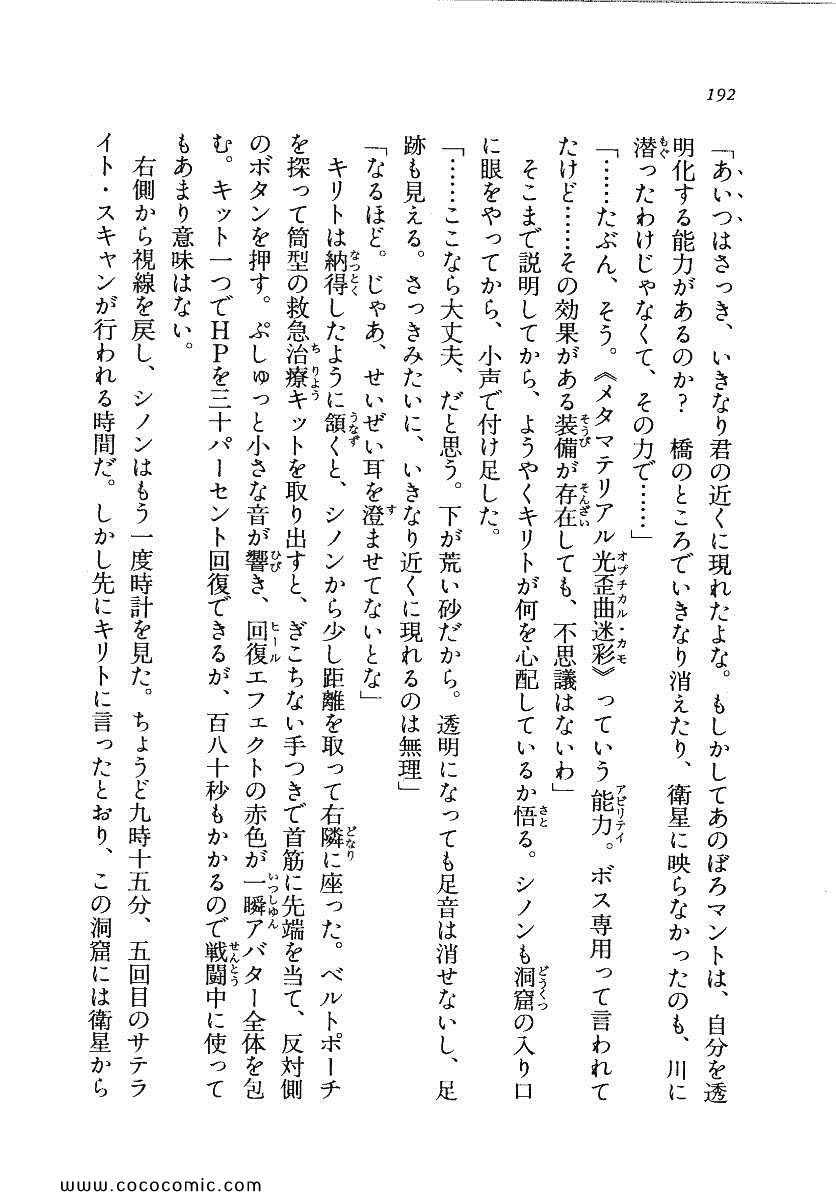 192
「あいつはさっき、いきなり君の近くに現れたよな。もしかしてあのぼろマントは、自分を透
明化する能力があるのか？　橋のところでいきなり消えたり、衛星に映らなかったのも、川に
潜ったわけじゃなくて、その力で……」
「……たぶん、そう。《メタマテリアル光歪曲迷彩》っていう能力。ボス専用って言われて
たけど……その効果がある装備が存在しても、不思議はないわ」
そこまで説明してから、ようやくキリトが何を心配しているか悟る。シノンも洞窟の入り口
に眼をやってから、小声で付け足した。
「……ここなら大丈夫、だと思う。下が荒い砂だから。透明になっても足音は消せないし、足
跡も見える。さっきみたいに、いきなり近くに現れるのは無理」
「なるほど。じゃあ、せいぜい耳を澄ませてないとな」
キリトは納得したように頷くと、シノンから少し距離を取って右隣に座った。ベルトポーチ
を探って筒型の救急治療キットを取り出すと、ぎこちない手つきで首筋に先端を当て、反対側
のボタンを押す。ぷしゅっと小さな音が響き、回復エフェクトの赤色が一瞬アバター全体を包
む。キット一つでＨＰを三十パーセント回復できるが、百八十秒もかかるので戦闘中に使って
もあまり意味はない。
右側から視線を戻し、シノンはもう一度時計を見た。ちょうど九時十五分、五回目のサテラ
イト・スキャンが行われる時間だ。しかし先にキリトに言ったとおり、この洞窟には衛星から
www.cococomic.com